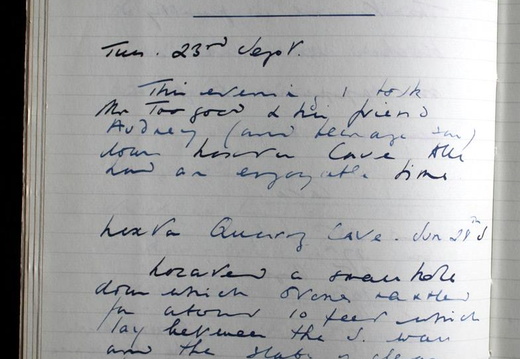 Tues. 23rd Sept.
This evening I took
Mr Toogood & his friend
Audrey (and teenage son)
down Loxton Cave. All
had an enjoyable time
Loxton Quarry Cave. Sun 28th S
Located a small hole
down which stones rattled
for about 10 feet which
lay between the S. wall
and the slab